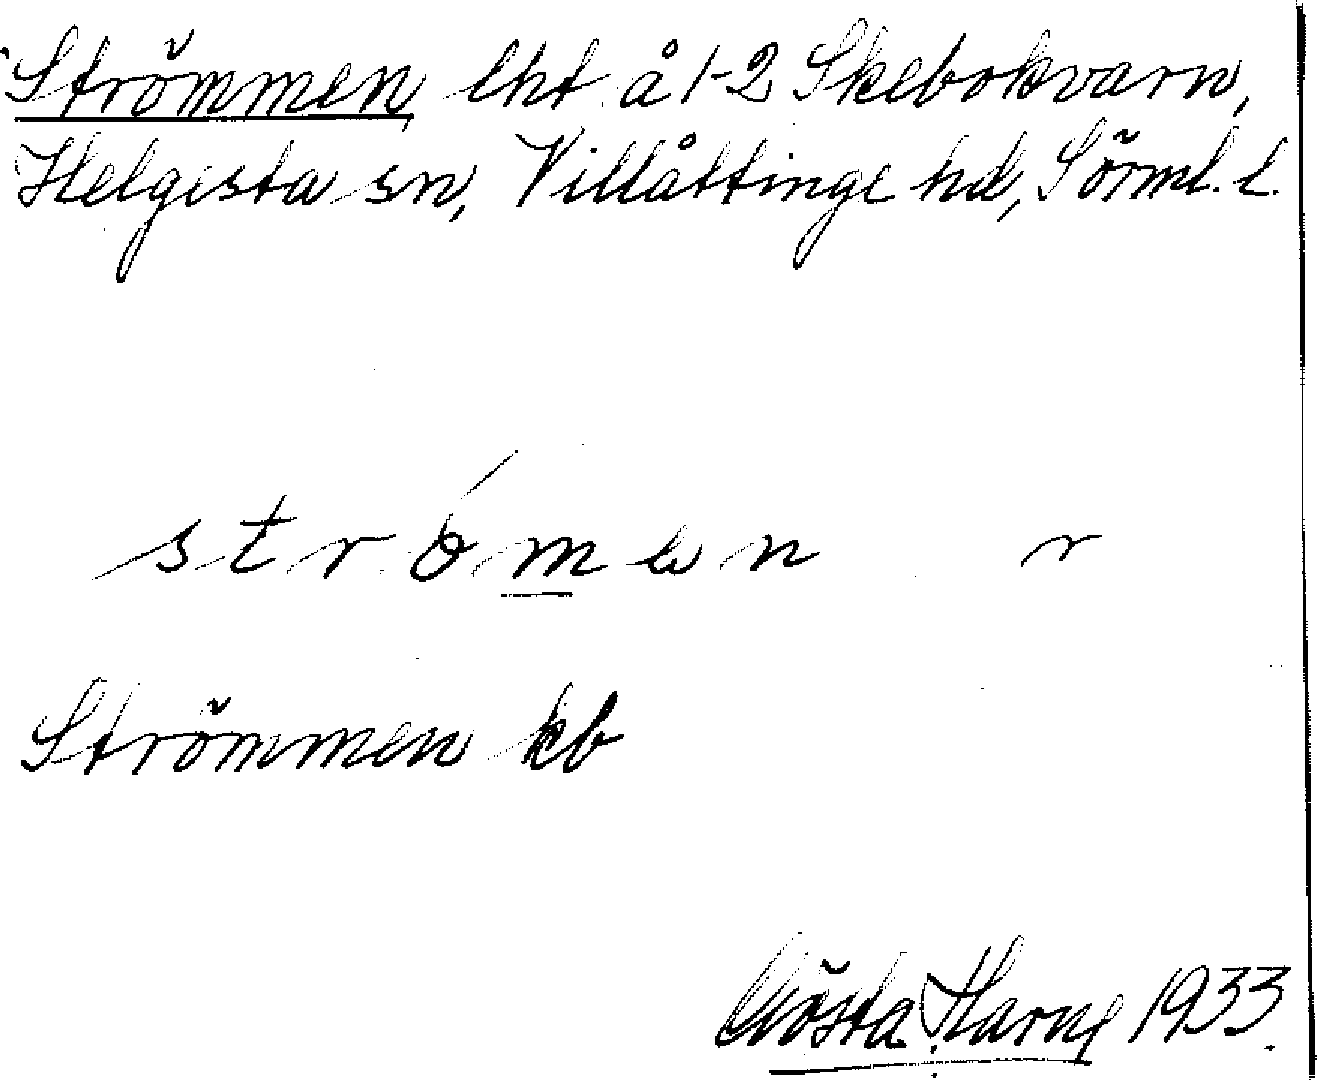 Strömmen, lht å 1-2 Skebokvarn,
Helgesta sn, Villåttinge hd, Sörml. l.
strömen r
Strömmen kb
Gösta Harng 1933.